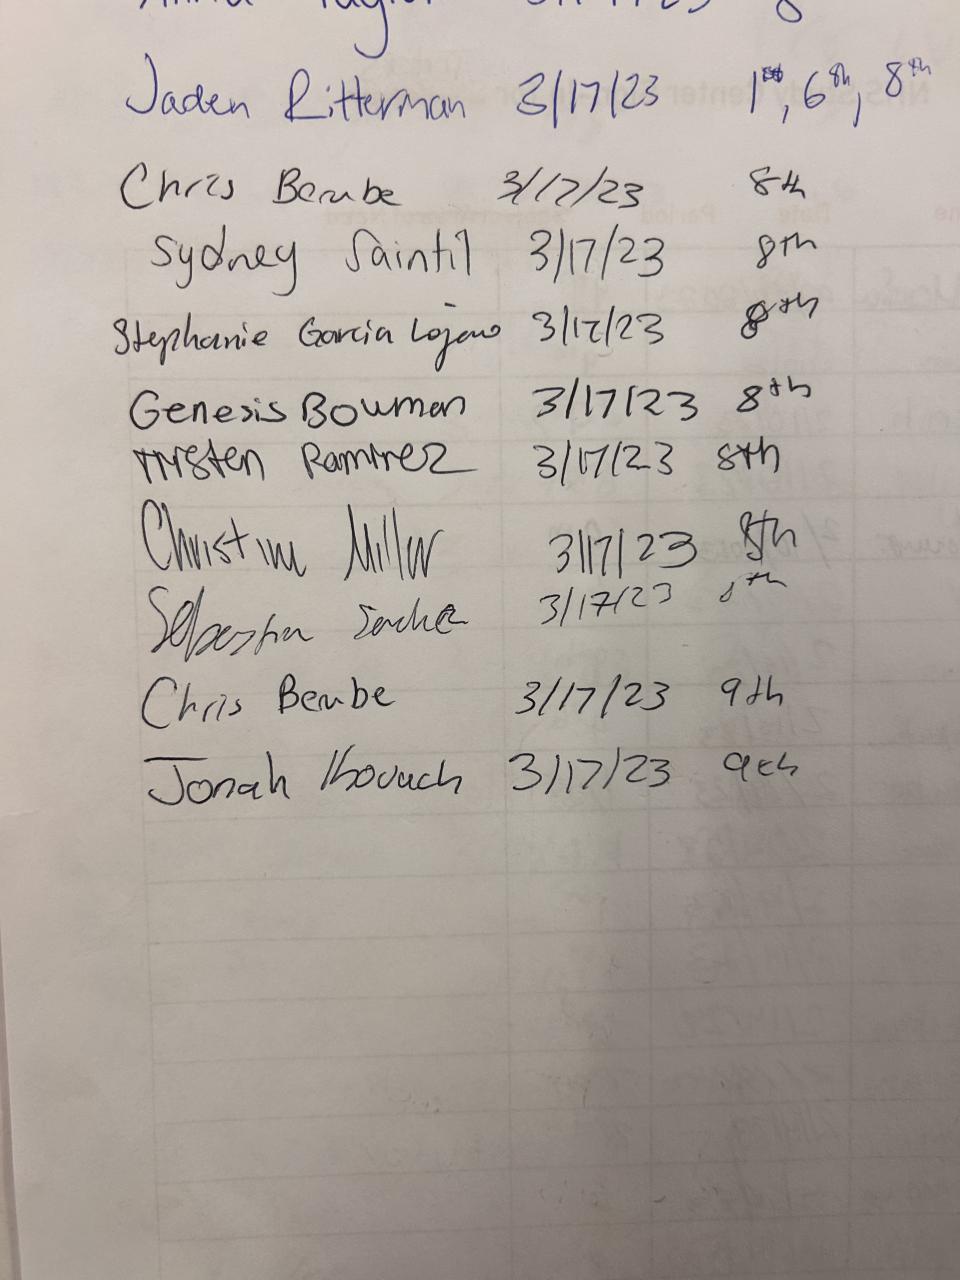 Taylor
Jaden Ritterman 3/17/23 1st, 6th, 8th
Chris Berube 3/17/23 8th
Sydney Saintil 3/17/23 8th
Stephanie Garcia Lojano 3/17/23 8th
Genesis Bowman 3/17/23 8th
Trysten Ramirez 3/17/23 8th
Christine Miller 3/17/23 8th
Sebastian 3/17/23 8th
Chris Berube 3/17/23 9th
Jonah 3/17/23 9th